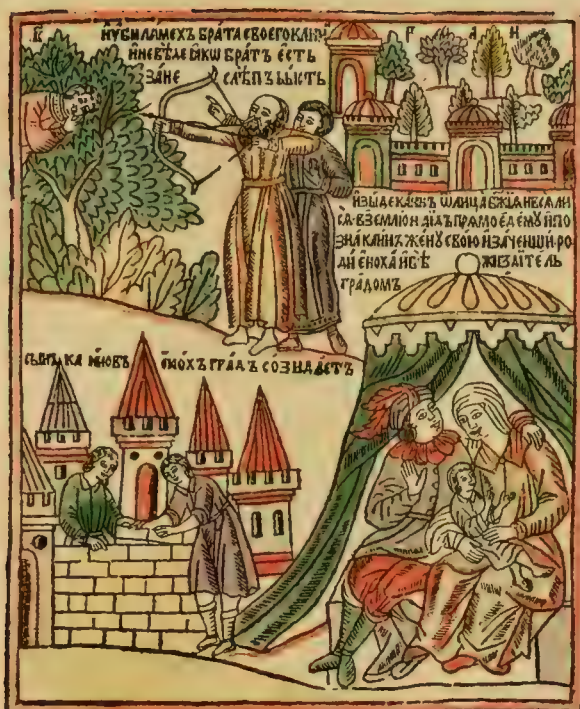 И҆УБИ ЛАМЕХЪ БРАТА СВОЕГО КАИН
И҆НЕВѢДЕ ꙖКѠ БРАТЪ Е҆СТЬ
ЗАНЕ СЛѢПЪ БЫСТЬ
Р А И
И҆ЗЫДЕ КАИНЪ Ѿ ЛИЦА БЖІѦ И҆ ВСЕЛИ
СѦ ВЗЕМЛЮ ПРѦМО Е҆ДЕМУ И҆ ПО
ЗНА КАИНЪ ЖЕНУ СВОЮ И҆ ЗАЧЕНШИ РО
ДИ Е҆НОХА И҆ БѢ
ГРАДОМЪ
СЫНЪ КАИНОВЪ Е҆НОХЪ ГРАДЪ СОЗИДАЕТЪ